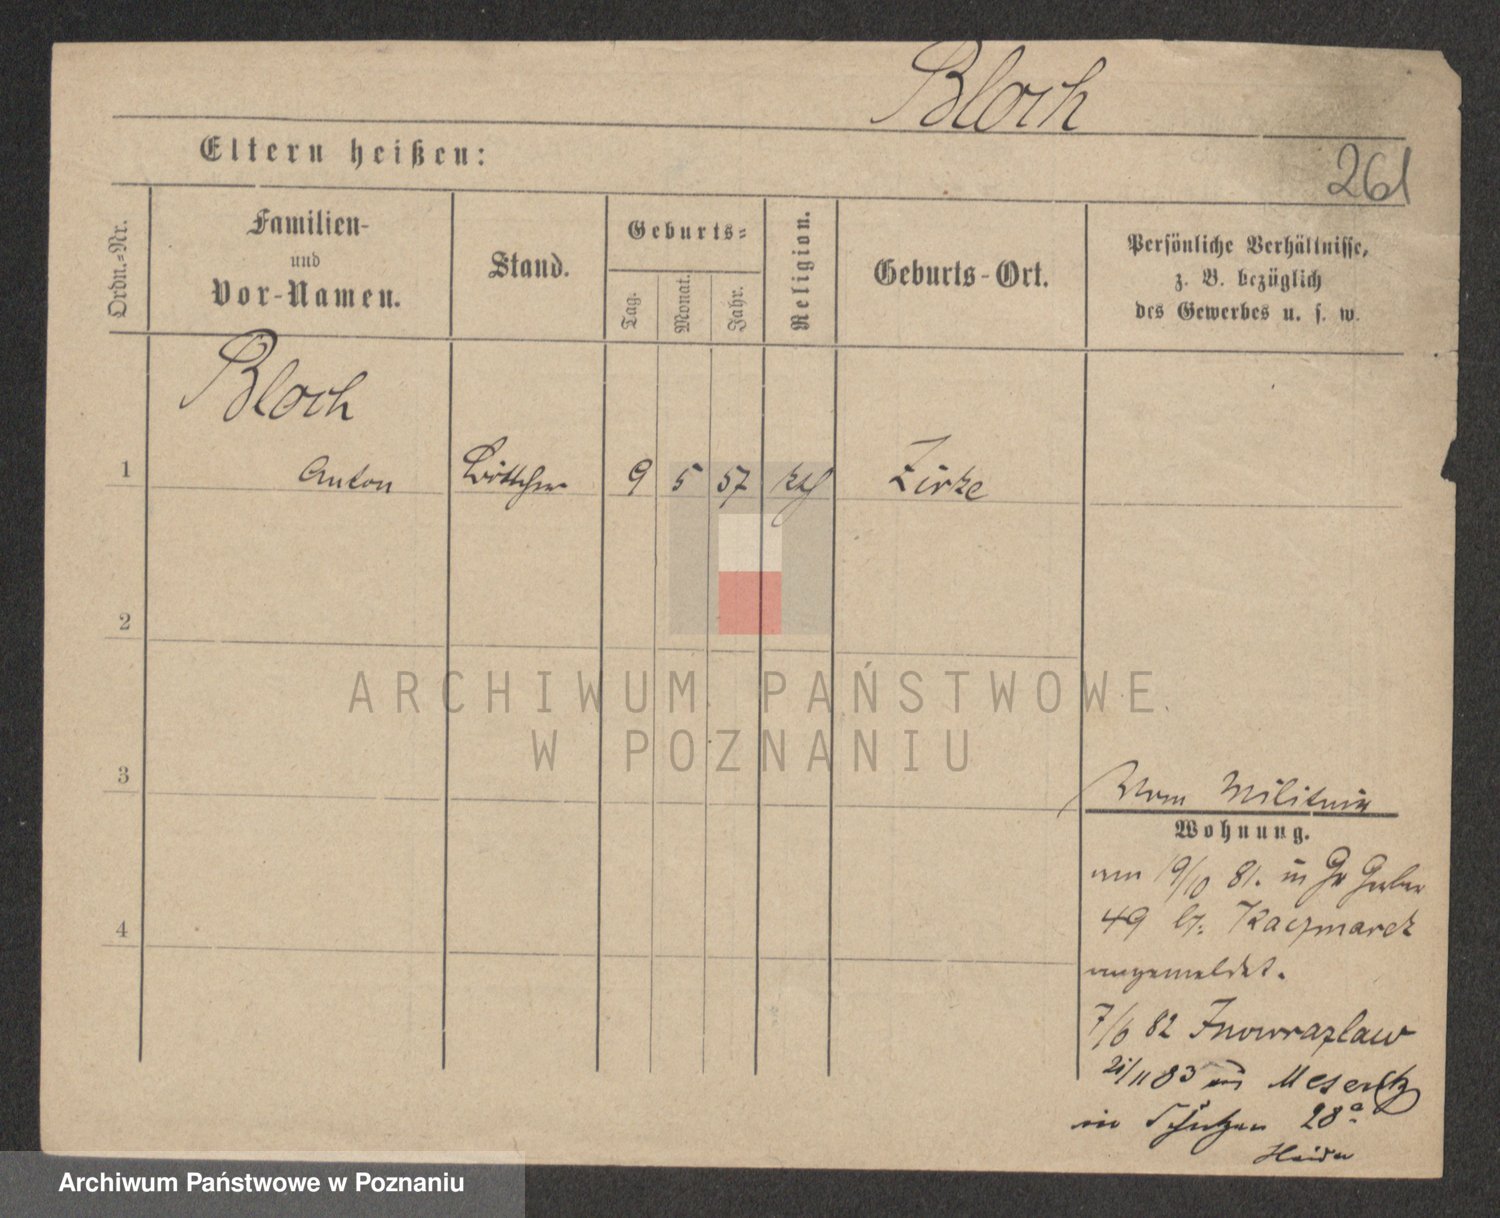 Bloch
Eltern heißen:
261
Ordn.-Nr.
Familien-
und
Vor-Namen.
Stand.
Geburts-
Tag.
Monat.
Jahr.
Religion.
Geburts-Ort.
Persönliche Verhältnisse,
z. B. bezüglich
des Gewerbes u. s. w.
Bloch
1 Anton Böttcher 9 5 57 kth Zirke
2
ARCHIWUM PAŃSTWOWE
W POZNANIU
3
Vom Militair
Wohnung.
am 19/10 81. in Gr Gerber
49 b. Kaczmarek
angemeldet.
4
7/6 82 Inowrazlaw
21/11 83 aus Meseritz
in Schützen 28a
Archiwum Państwowe w Poznaniu